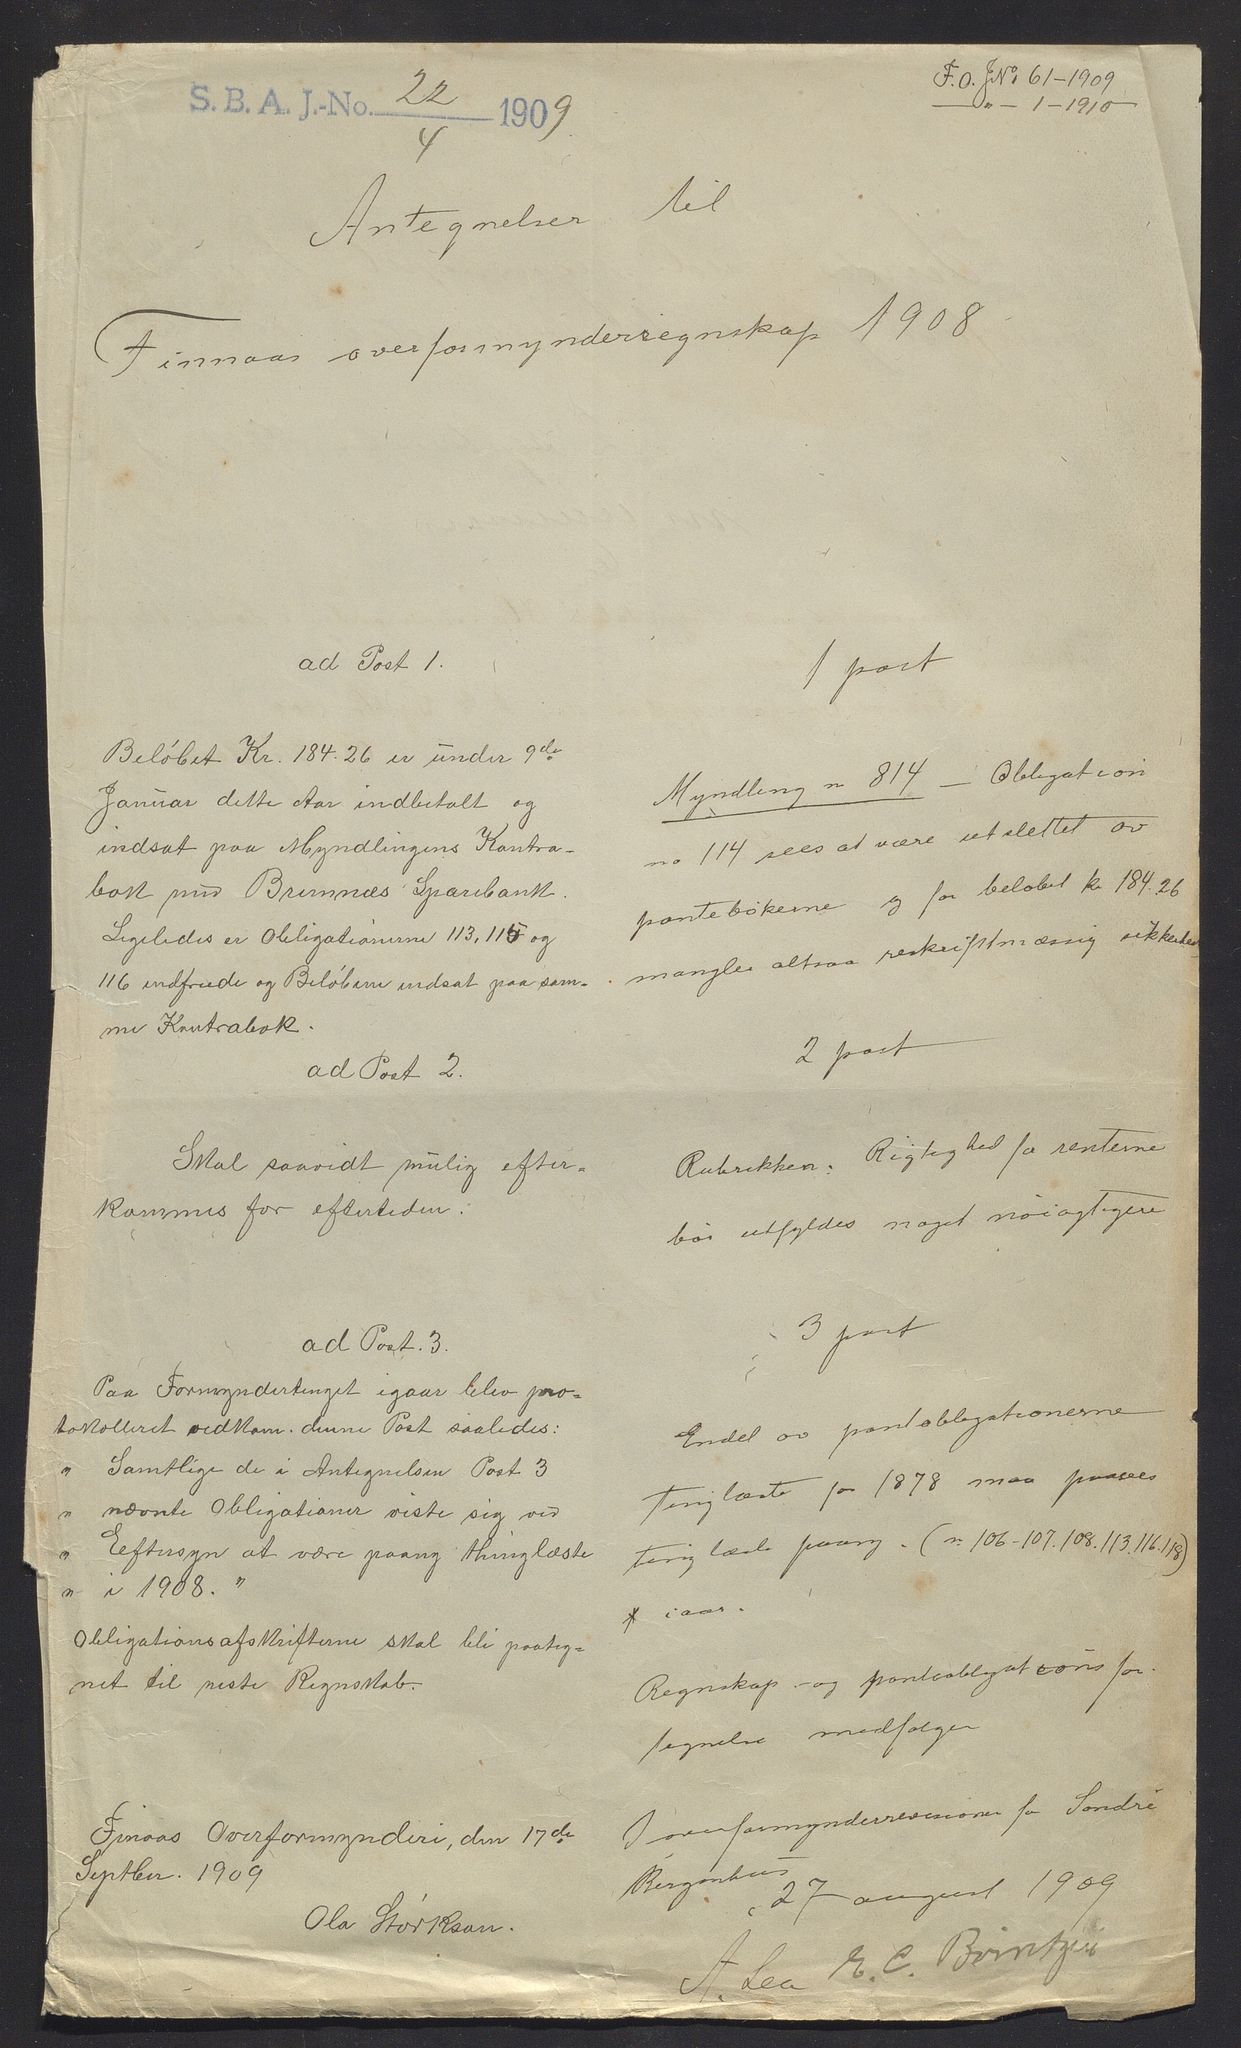 S. B. A. J.-No. 22/4 1909
F. O. J No 61-1909
—„— 1-1910
Antegnelser til
Finnaas overformynderregnskap 1908
ad Post 1.
Beløbet Kr. 184.26 er under 9de
Januar dette Aar indbetalt og
indsat paa Myndlingens Kontra-
bok med Bremnæs Sparebank.
Ligeledes er Obligationerne 113, 115 og
116 indfriede og Beløbene indsat paa sam-
me Kontrabok.
ad Post 2.
Skal saavidt mulig efter-
kommes for eftertiden.
ad Post. 3.
Paa Formyndertinget igaar blev pro-
tokolleret vedkom. denne Post saaledes:
„ Samtlige de i Antegnelsen Post 3
„ nævnte Obligationer viste sig ved
„ Eeftersyn at være paany thinglæste
„ i 1908. "
Obligationsafskrifterne skal bli paateg-
net til neste Regnskab.
Finaas Overformynderi, den 17de
Septber. 1909
Ola Størkson.
1 post
Myndling n 814 — Obligation
no 114 sees at være utslettet av
pantebøkerne og for beløbet kr 184.26
mangler altsaa reskriptmæssig sikkerhed
2 post
Rubrikken: Rigtighed for renterne
bør utfyldes noget nøiagtigere
3 post
Endel av pantobligationerne
tinglæste før 1878 maa paasees
tinglæste paany. (n. 106-107.108.113.116.118)
* iaar.
Regnskap - og panteobligationsfor-
tegnelse medfølger
I overformynderrevisionen for Søndre
Bergenhus
27 august 1909
A. Lea E. C.